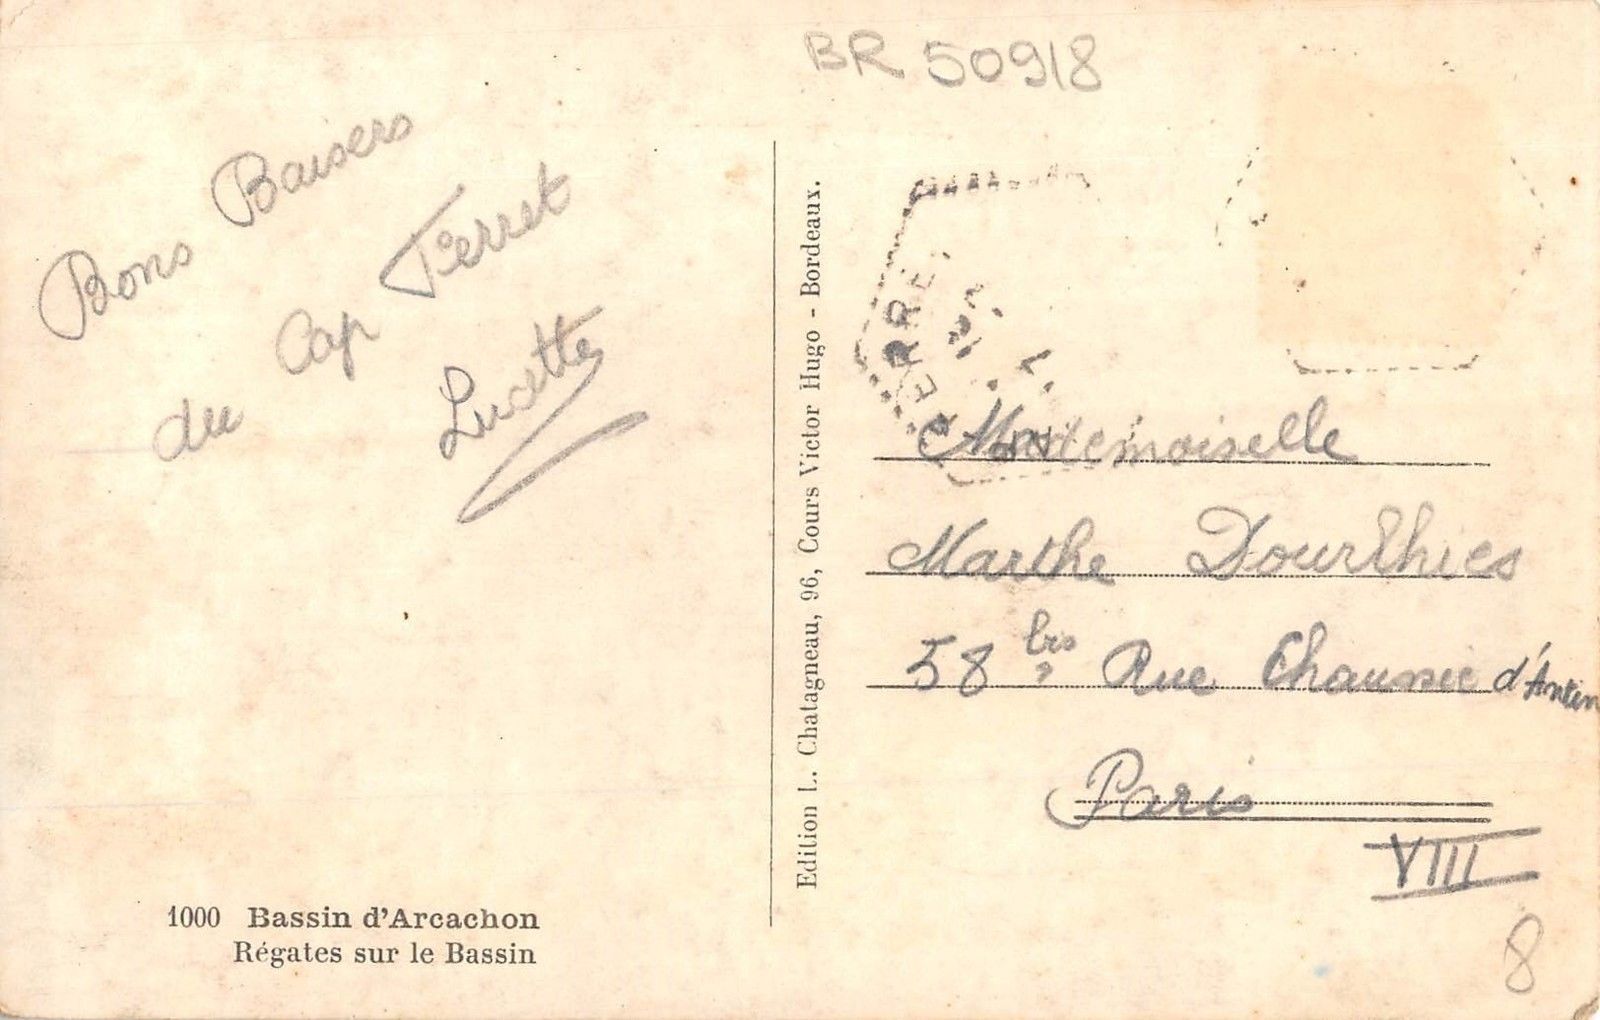 BR 50918
Bons Baisers
du Cap Ferret
Lucette
Edition L. Chatagneau, 96, Cours Victor Hugo - Bordeaux.
FERRE
Mademoiselle
Marthe Dourthies
58 bis Rue Chaussée d'Antin
Paris
VIII
8
1000 Bassin d'Arcachon
Régates sur le Bassin